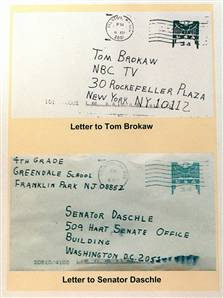 34
TOM BROKAW
NBC TV
30 ROCKEFELLER PLAZA
NEW YORK NY 10112
Letter to Tom Brokaw
4TH GRADE
GREENDALE SCHOOL
FRANKLIN PARK NJ 08852
SENATOR DASCHLE
509 HART SENATE OFFICE
BUILDING
WASHINGTON D.C.
Letter to Senator Daschle